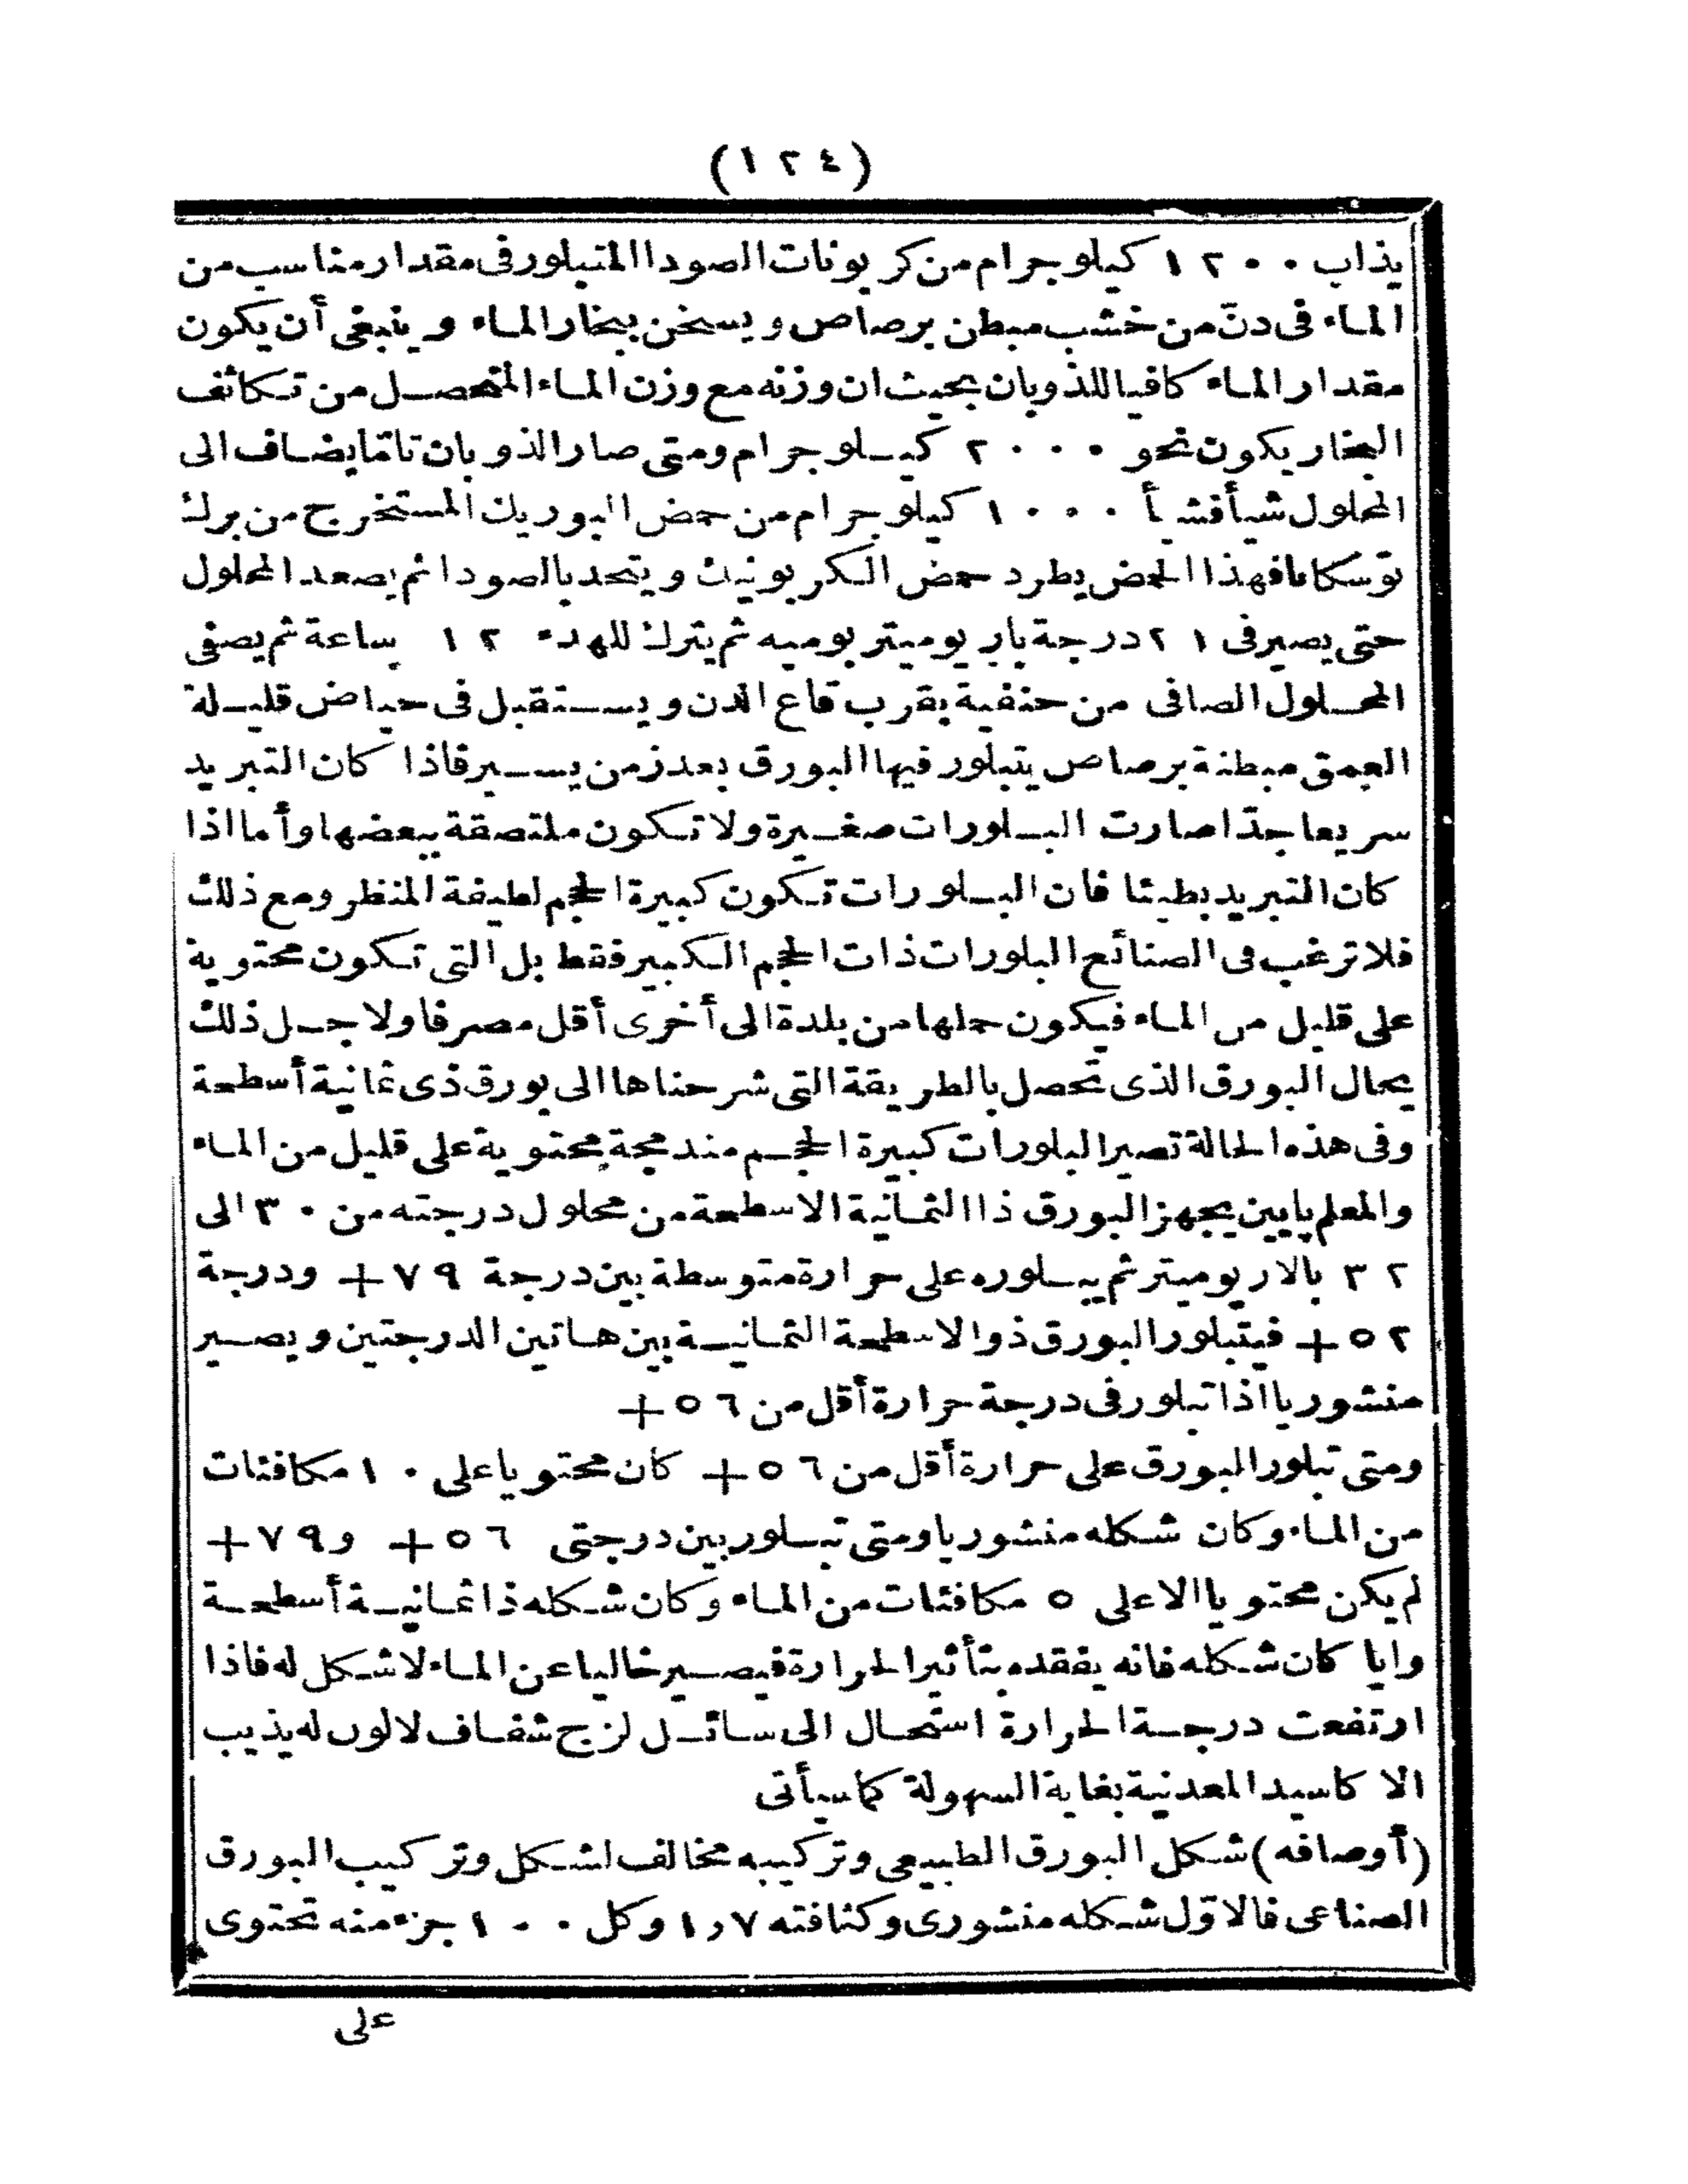 (١٢٤)
يذاب ١٢٠٠ كيلو جرام من كربونات الصودا المتبلور فى مقدار مناسب من
الماء فى دنّ من خشب مبطن برصاص ويسخن ببخار الماء وينبغى أن يكون
مقدار الماء كافيا للذوبان بحيث ان وزنه مع وزن الماء المتحصل من تكاثف
البخار يكون نحو ٢٠٠٠ كيلو جرام ومتى صار الذوبان تامّا يضاف الى
المحلول شيأ فشيأ ١٠٠٠ كيلو جرام من حمض البوريك المستخرج من برك
توسكانا فهذا الحمض يطرد حمض الكربونيك ويتحد بالصودا ثم يصعد المحلول
حتى يصير فى ٢١ درجة باريوميتر بوميه ثم يترك للهدء ١٢ ساعة ثم يصفى
المحلول الصافى من حنفية بقرب قاع الدن ويستقبل فى حياض قليلة
العمق مبطنة برصاص يتبلور فيها البورق بعد زمن يسير فاذا كان التبريد
سريعا جدّا صارت البلورات صغيرة ولا تكون ملتصقة ببعضها وأما اذا
كان التبريد بطيئا فان البلورات تكون كبيرة الحجم لطيفة المنظر ومع ذلك
فلا ترغب فى الصنائع البلورات ذات الحجم الكبير فقط بل التى تكون محتوية
على قليل من الماء فيكون حملها من بلدة الى أخرى أقل مصرفا ولاجل ذلك
يحال البورق الذى تحصل بالطريقة التى شرحناها الى بورق ذى ثمانية أسطحة
وفى هذه الحالة تصير البلورات كبيرة الحجم مندمجة محتوية على قليل من الماء
والمعلم پايين يجهز البورق ذا الثمانية الاسطحة من محلول درجته من ٣٠ الى
٣٢ بالاريوميتر ثم يبلوره على حرارة متوسطة بين درجة ٧٩ + ودرجة
٥٢ + فيتبلور البورق ذو الاسطحة الثمانية بين هاتين الدرجتين ويصير
منشوريا اذا تبلور فى درجة حرارة أقل من ٥٦ +
ومتى تبلور البورق على حرارة أقل من ٥٦ + كان محتويا على ١٠ مكافئات
من الماء وكان شكله منشوريا ومتى تبلور بين درجتى ٥٦ + و ٧٩ +
لم يكن محتويا الا على ٥ مكافئات من الماء وكان شكله ذا ثمانية أسطحة
وايا كان شكله فانه يفقده بتأثير الحرارة فيصير خاليا عن الماء لا شكل له فاذا
ارتفعت درجة الحرارة استحال الى سائل لزج شفاف لا لون له يذيب
الاكاسيد المعدنية بغاية السهولة كما سيأتى
(أوصافه) شكل البورق الطبيعى وتركيبه مخالف لشكل وتركيب البورق
الصناعى فالاوّل شكله منشورى وكثافته ١٫٧ وكل ١٠٠ جزء منه تحتوى
على